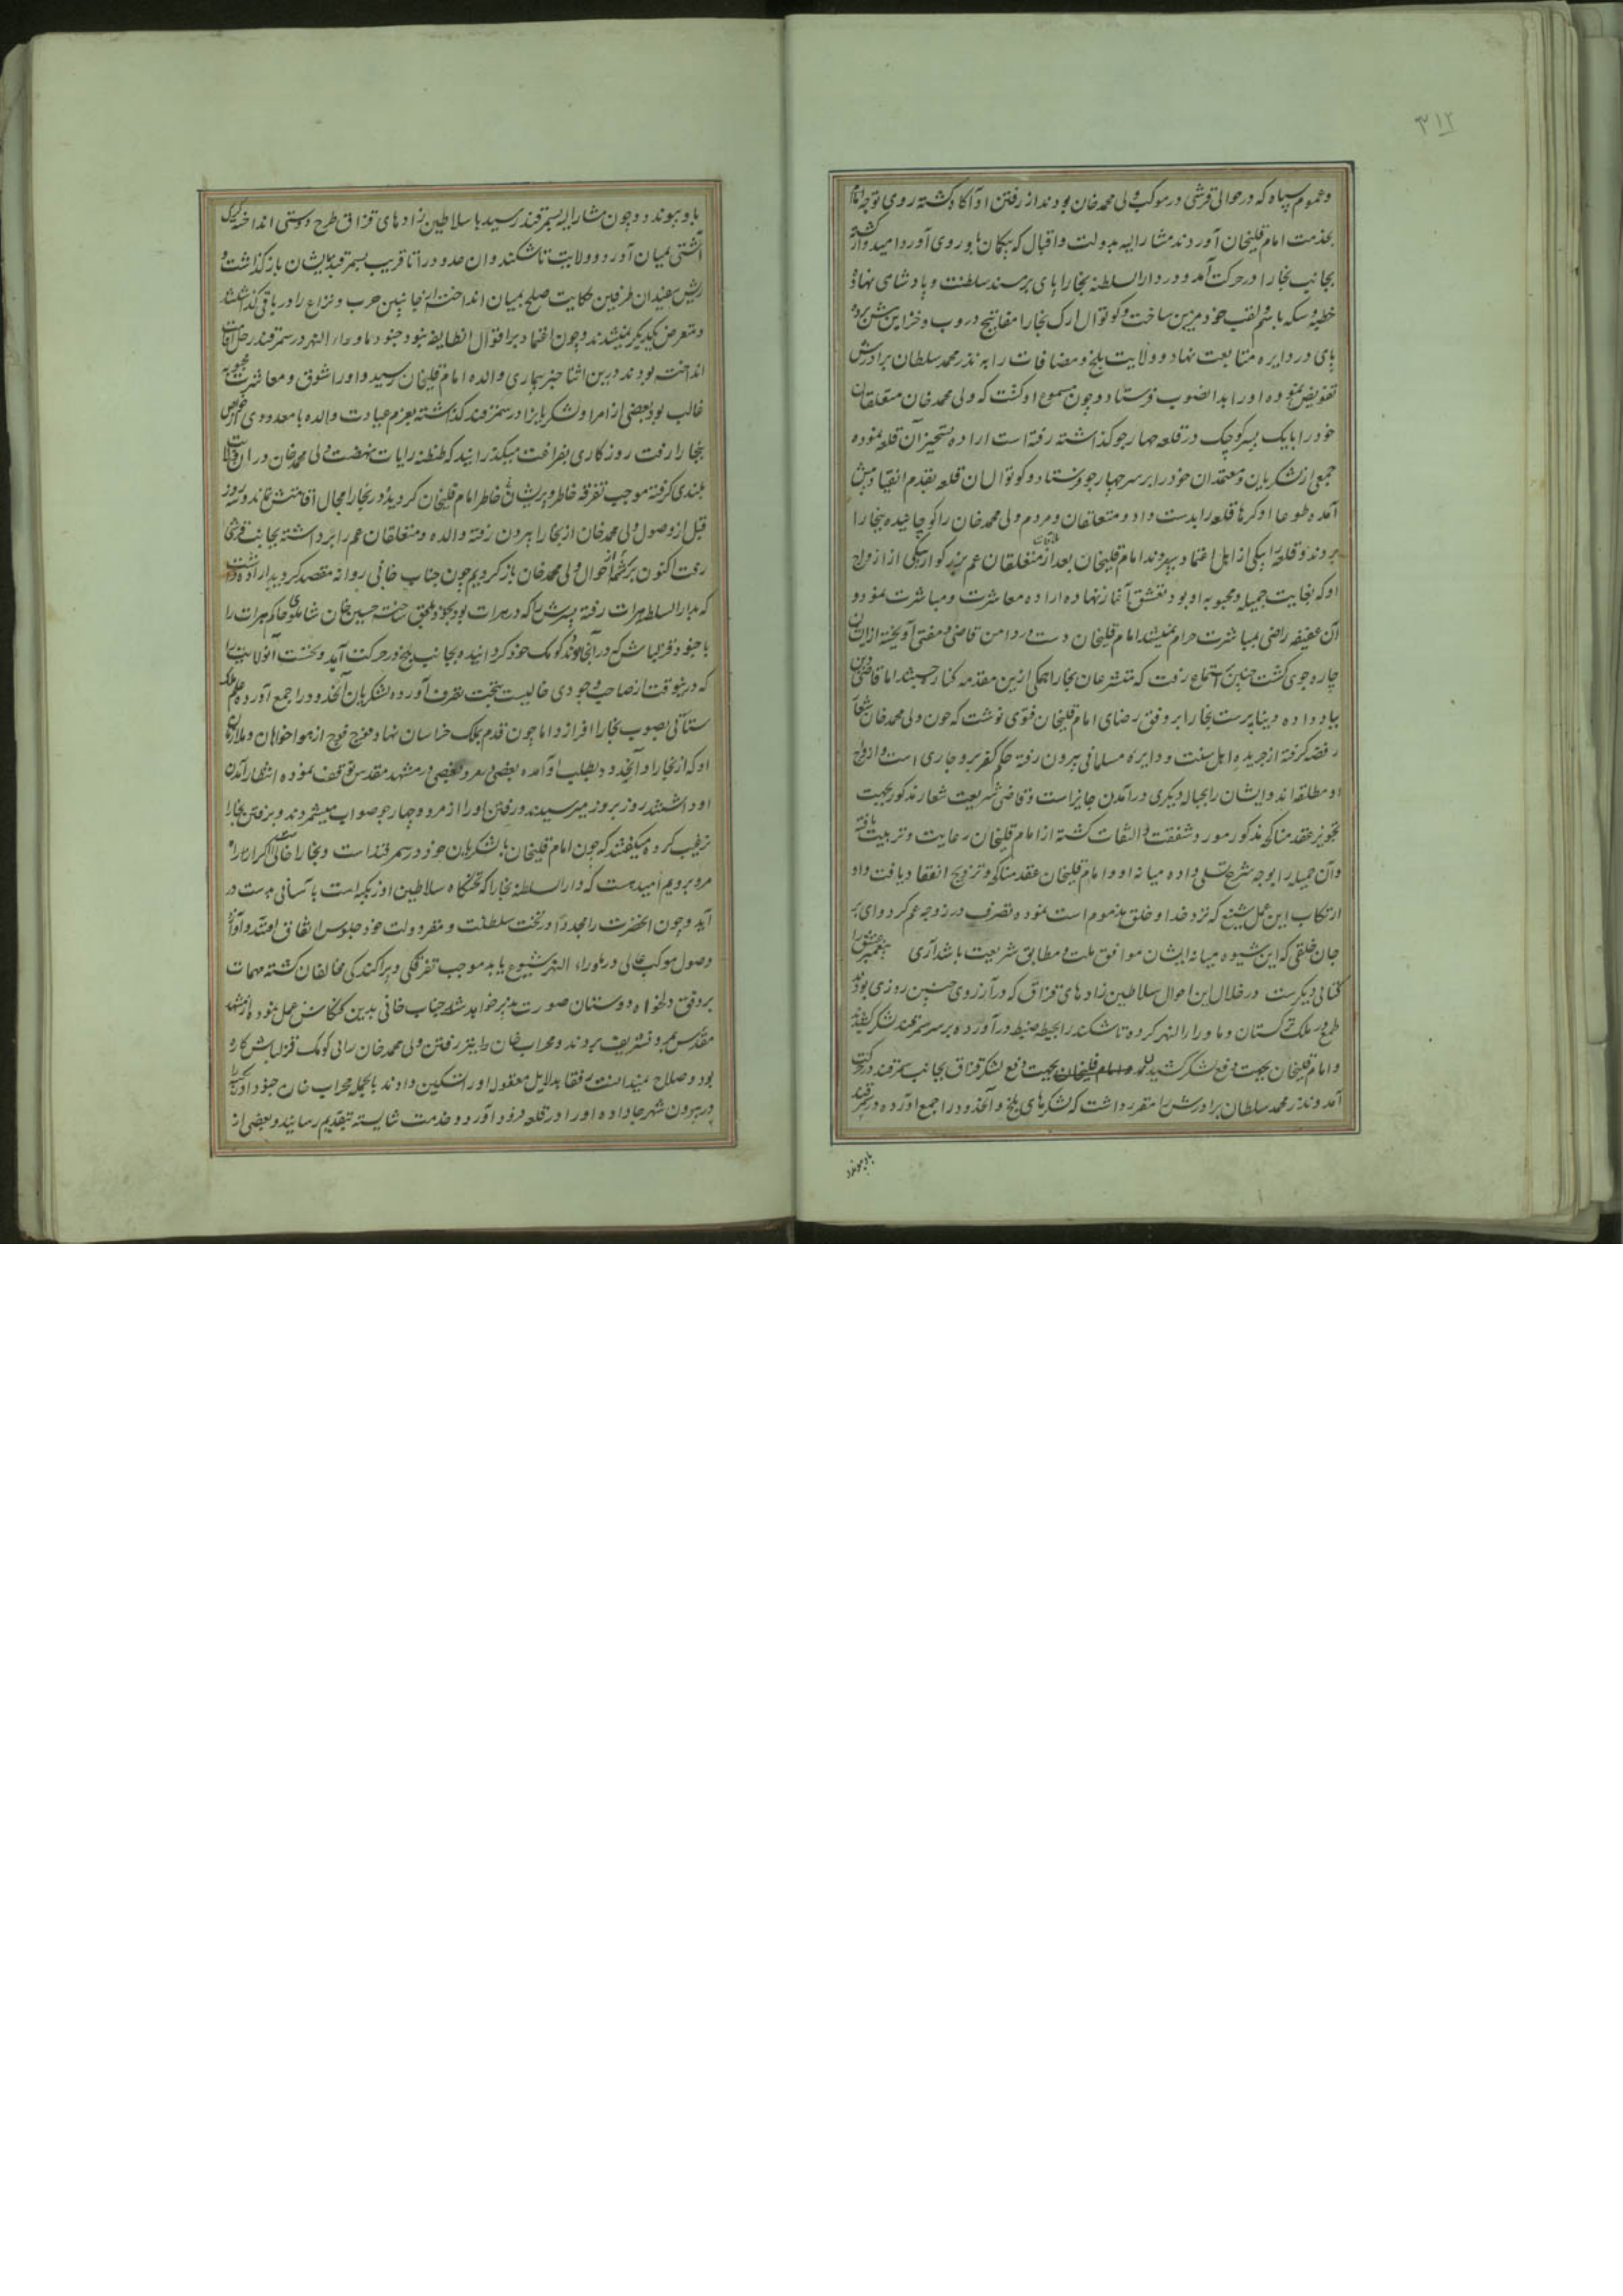 ۳۱۲
وعموم سپاه که در حوالی قرشی در موکب ولی محمد خان بودند از رفتن او آکاه کشته روی توجه تمام
بخدمت امام قلیخان آوردند مشار الیه بدولت واقبال که بیکان باو روی آورد امیدوار کشته
بجانب بخارا در حرکت آمد و در دار السلطنه بخارا پای بر مسند سلطنت و پادشاهی نهاد
خطبه وسکه باسم ولقب خود مزین ساخت وکوتوال ارک بخارا مفاتیح دروب وخزاین پیش برده
پای در دایره متابعت نهاد و ولایت بلخ ومضافات را به نذر محمد سلطان برادرش
تفویض نموده اورا بدانصوب فرستاد وچون مسموع او کشت که ولی محمد خان متعلقان
خود را با یک پسر کوچک در قلعه چهارجو کذاشته رفته است اراده تسخیر آن قلعه نموده
جمعی از لشکریان ومعتمدان خود را بر سر چهارجو فرستاد وکوتوالان قلعه بقدم انقیاد پیش
آمده طوعا او کرها قلعه را بدست داد و متعلقان ومردم ولی محمد خان را کوچانیده ببخارا
بردند وقلعه را بیکی از اهل اعتماد سپردند امام قلیخان بعد از ملاقات متعلقان عم بزرکوار بیکی از ازواج
او که بغایت جمیله ومحبوبه او بود تعشق آغاز نهاده اراده معاشرت ومباشرت نمود و
آن عفیفه راضی بمباشرت حرام نمیشد امام قلیخان دست در دامن قاضی ومفتی آویخته از ایشان
چاره جوی کشت چنین استماع رفت که متشرعان بخارا همکی ازین مقدمه کنار جستند اما قاضی دین
بباد داده دنیا پرست بخارا بر وفق رضای امام قلیخان فتوی نوشت که چون ولی محمد خان شعار
رفضه کرفته از جریده اهل سنت و دایره مسلمانی بیرون رفته حکم کفر برو جاری است و ازواج
او مطلقه اند و ایشان را بحباله دیکری درآمدن جایز است و قاضی شریعت شعار مذکور بجهت
تجویز عقد مناکحه مذکور مورد شفقت والتفات کشته از امام قلیخان رعایت وتربیت یافته
وآن جمیله را بوجه شرع تسلی داده میانه او و امام قلیخان عقد مناکحه وتزویج انعقاد یافت واد
ارتکاب این عمل شنیع که نزد خدا و خلق مذموم است نموده تصرف در زوجه عم کرد وای بر
جان خلقی که این شیوه میانه ایشان موافق ملت ومطابق شریعت باشد آری پیغمبر عشق را
کتابی دیکرست در خلال این احوال سلاطین زادهای قزاق که در آرزوی چنین روزی بودند
طمع در ملک ترکستان و ماوراالنهر کرده تاشکند را بحیطه ضبط درآورده بر سر سمرقند لشکر کشیدند
و امام قلیخان بجهت دفع لشکر قزاق بجانب سمرقند در حرکت
آمد و نذر محمد سلطان برادرش را مقرر داشت که لشکرهای بلخ وآنحدود را جمع آورده در سمرقند
باو پیوندد
باو پیوندد وچون مشار الیه بسمرقند رسید با سلاطین زادهای قزاق طرح دوستی انداخته کرک
آشتی بمیان آورد و ولایت تاشکند وان حدود را تا قریب بسمرقند بدیشان باز کذاشت و
ریش سفیدان طرفین حکایت صلح بمیان انداخته از جانبین حرب ونزاع را در باقی کذاشتند
ومتعرض یکدیکر نمیشدند وچون اعتماد بر اقوال انطایفه نبود جنود ماوراء النهر در سمرقند رحل اقامت
انداخته بودند درین اثنا خبر بیماری والده امام قلیخان رسید واورا شوق ومعاشرت محبوبه
غالب بود بعضی از امرا ولشکریان را در سمرقند کذاشته بعزم عیادت والده با معدودی از خواص
ببخارا رفت روزکاری بفراغت میکذرانید که طنطنه رایات نهضت ولی محمد خان در ان ولایت
بلندی کرفته موجب تفرقه خاطر وپریشانی خاطر امام قلیخان کردید و در بخارا مجال اقامتش نماند و سه روز
قبل از وصول ولی محمد خان از بخارا بیرون رفته والده ومتعلقان عم را برداشته بجانب قرشی
رفت اکنون بر سر شرح احوال ولی محمد خان باز کردیم چون جناب خانی روانه مقصد کردید اراده داشت
که بدار السلطنه هرات رفته پسرش را که در هرات بود بخود ملحق ساخته حسین خان شاملو حاکم هرات را
با جنود قزلباش که در آنجا بودند کومک خود کردانیده بجانب بلخ در حرکت آید ونخست آنولایت را
که درینوقت از صاحب وجودی خالیست بتحت تصرف آورده لشکریان آنحدود را جمع آورده علم ملک
ستانی بصوب بخارا افرازد اما چون قدم بملک خراسان نهاد فوج فوج از هواخواهان وملازمان
او که از بخارا وآنحدود بطلب او آمده بعضی در مرو وبعضی در مشهد مقدس توقف نموده انتظار آمدن
او داشتند روز بروز میرسیدند ورفتن اورا از مرو وچهارجو صواب میشمردند وبرفتن بخارا
ترغیب کرده میکفتند که چون امام قلیخان با لشکریان خود در سمرقند است وبخارا خالی اکر از راه
مرو برویم امیدست که دار السلطنه بخارا که تختکاه سلاطین اوزبکیه است بآسانی بدست در
آید وچون انحضرت را مجددا در تخت سلطنت ومقر دولت خود جلوس اتفاق افتد وآوازه
وصول موکب عالی در ماوراء النهر شیوع یابد موجب تفرقکی وپراکندکی مخالفان کشته مهمات
بر وفق دلخواه دوستان صورت پذیر خواهد شد جناب خانی بدین کنکاش عمل نموده از مشهد
مقدس بمرو تشریف بردند ومحراب خان را نیز رفتن ولی محمد خان را بی کومک قزلباش کاره
بود وصلاح نمیدانست رفقا بدلایل معقول اورا تسکین دادند بالجمله محراب خان جنود اوزبکیه را
در بیرون شهر جا داده اورا در قلعه فرود آورد و خدمت شایسته بتقدیم رسانید وبعضی از